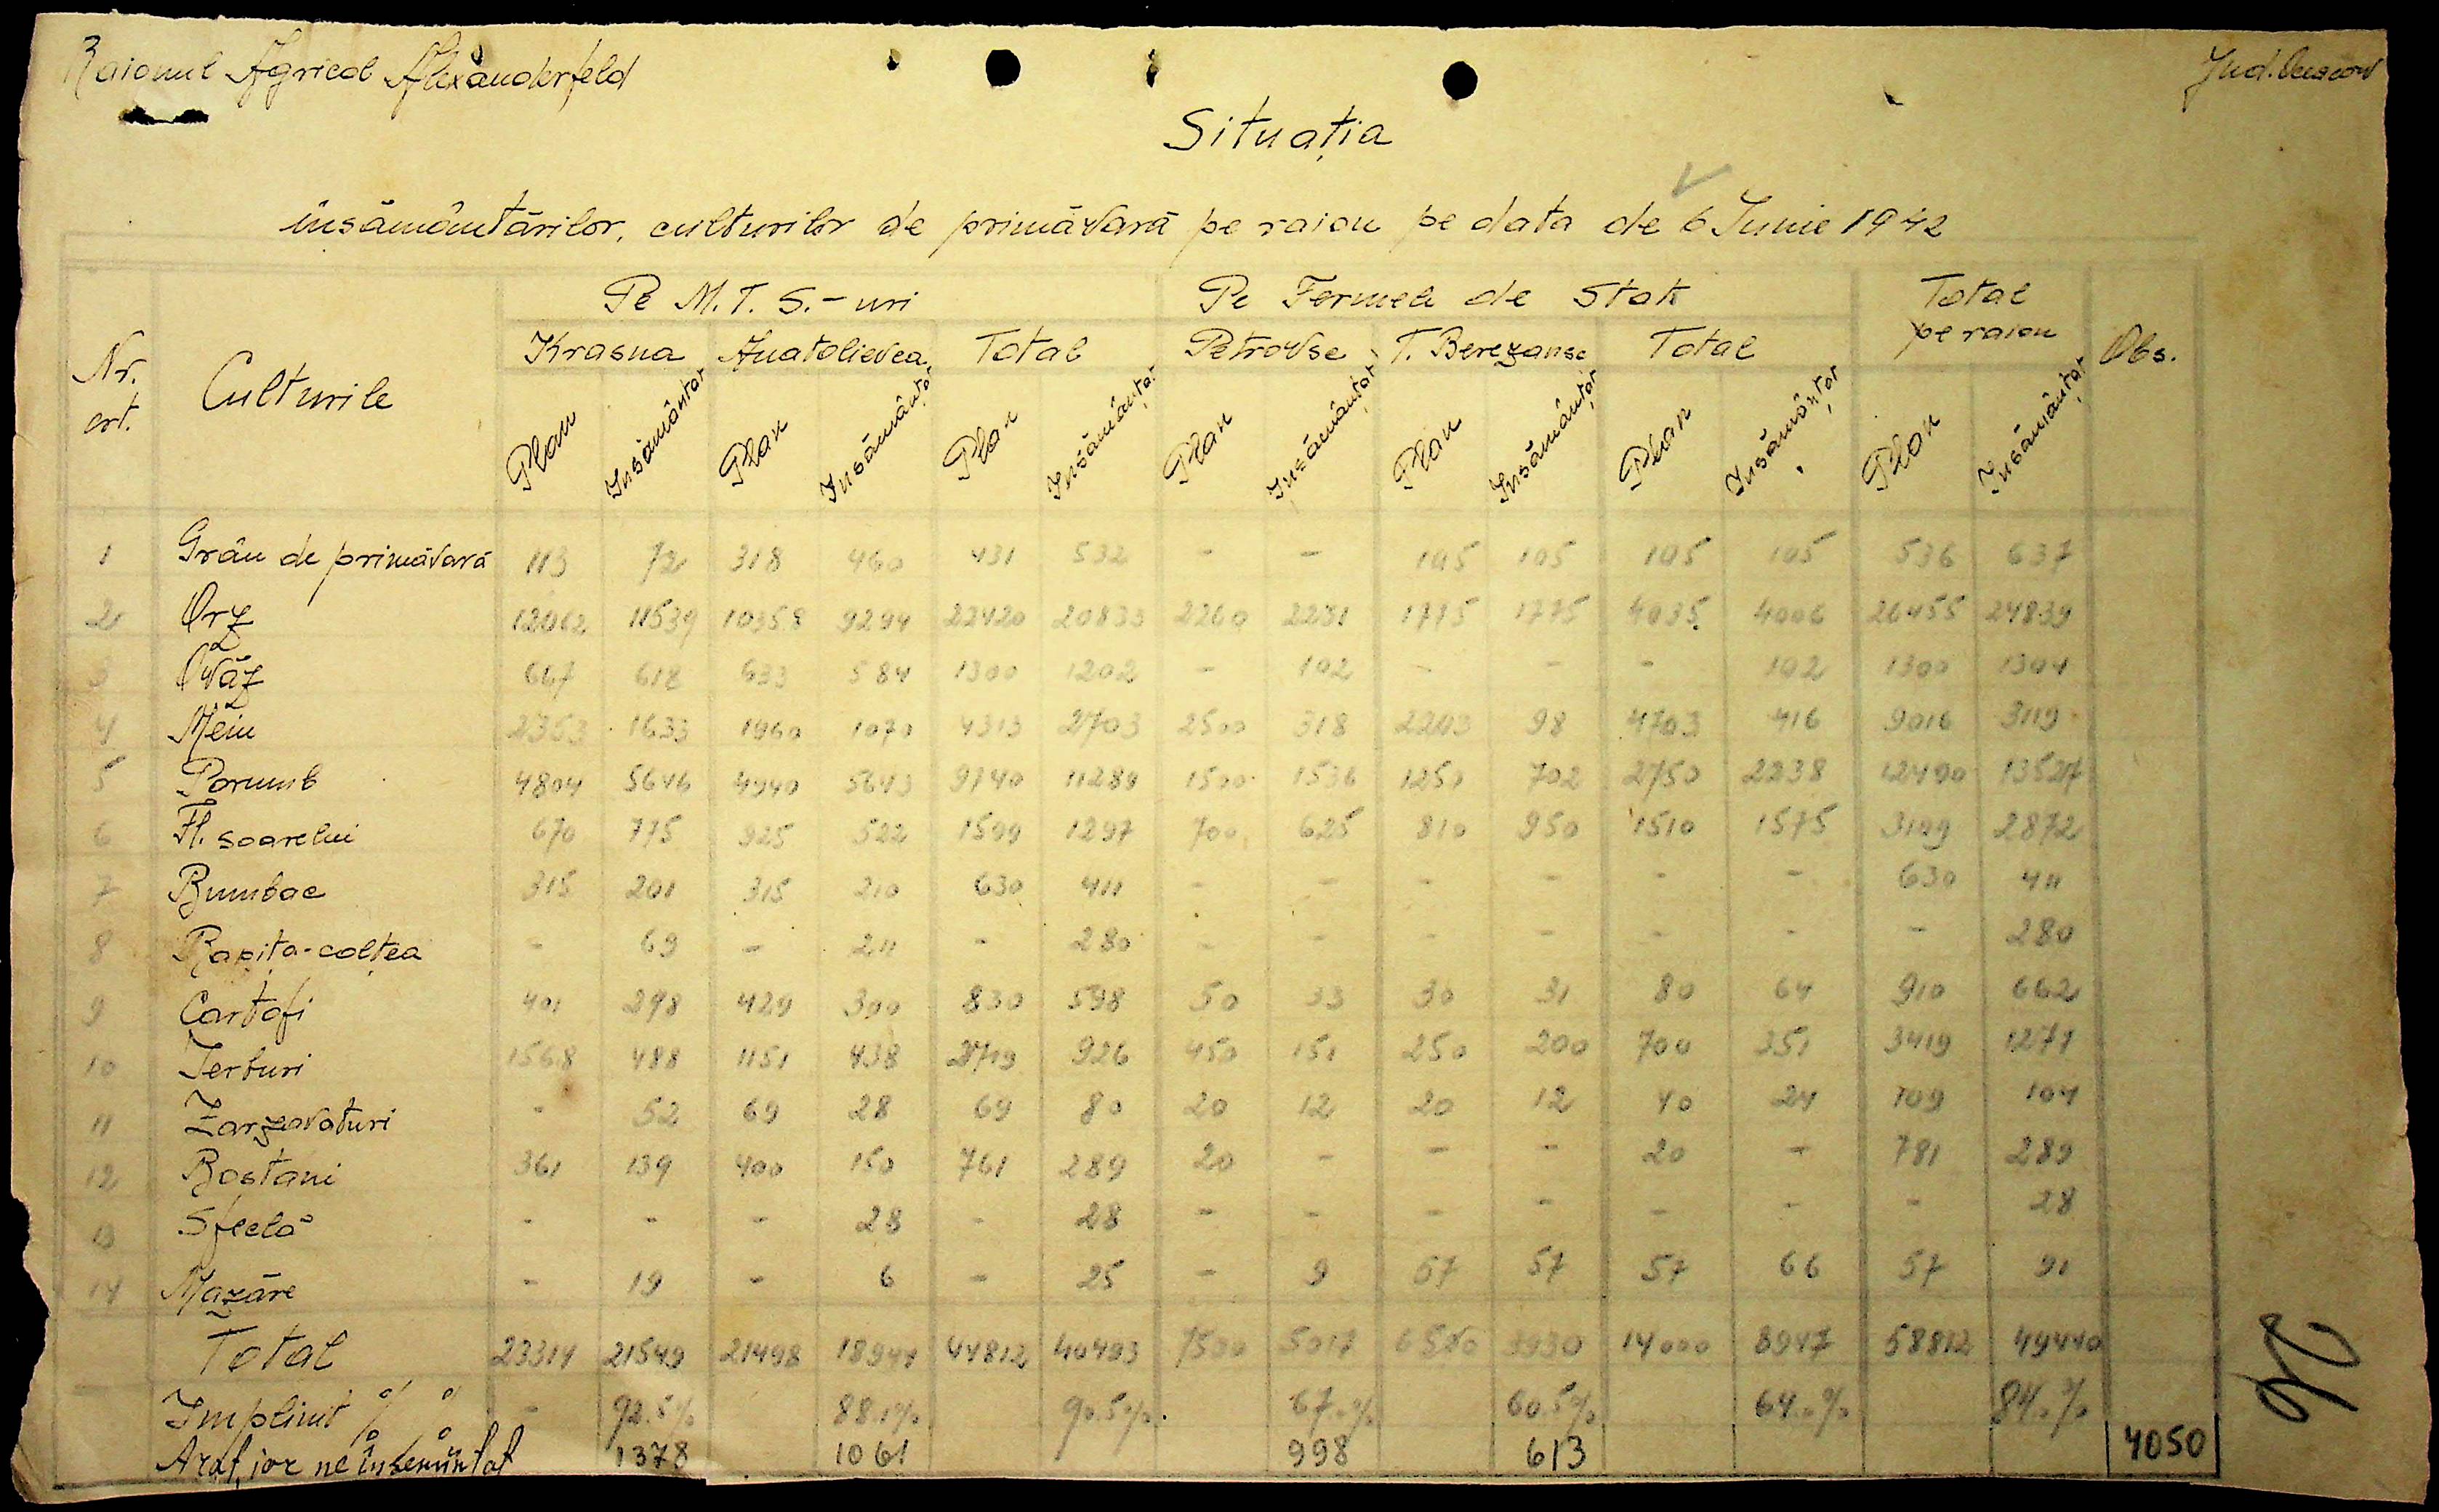 Raionul Agricol Alexanderfeld
Jud.
Situația
însămânțărilor, culturilor de primăvară pe raion pe data de 6 Iunie 1942
Nr. crt. Culturile Pe M.T.S.-uri Pe Fermele de Stat Total pe raion Obs.
Krasna Anatolievca Total Petrovsc T. Berezansc Total
Plan Însămânțat Plan Însămânțat Plan Însămânțat Plan Însămânțat Plan Însămânțat Plan Însămânțat Plan Însămânțat
1 Grâu de primăvară 113 72 318 460 431 532 - - 105 105 105 105 536 637
2 Orz 12062 11539 10358 9294 22420 20833 2260 2231 1775 1775 4035 4006 26455 24839
3 Ovăz 667 618 633 584 1300 1202 - 102 - - - 102 1300 1304
4 Meiu 2353 1633 1960 1070 4313 2703 2500 318 2203 98 4703 416 9016 3119
5 Porumb 4804 5646 4940 5643 9740 11289 1500 1536 1250 702 2750 2238 12490 13527
6 Fl. soarelui 670 775 925 522 1599 1297 700 625 810 950 1510 1575 3109 2872
7 Bumbac 315 201 315 210 630 411 - - - - - - 630 411
8 Rapița-colțea - 69 - 211 - 280 - - - - - - - 280
9 Cartofi 401 298 429 300 830 598 50 33 30 31 80 64 910 662
10 Ierburi 1568 488 1151 438 2719 926 450 151 250 200 700 351 3419 1277
11 Zarzavaturi - 52 69 28 69 80 20 12 20 12 40 24 109 104
12 Bostani 361 139 400 150 761 289 20 - - - 20 - 781 289
13 Sfeclă - - - 28 - 28 - - - - - - - 28
14 Mazăre - 19 - 6 - 25 - 9 57 57 57 66 57 91
Total 23314 21549 21498 18944 44812 40493 7500 5017 6500 3930 14000 8947 58812 49440
Implinit % % - 92.5% 88.1% 90.5% 67.% 60.5% 64.% 84.%
Arat, jor ne însemințat 1378 1061 998 613 4050